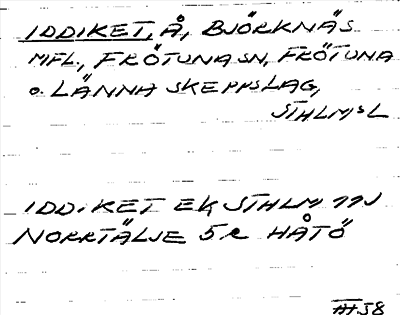 IDDIKET, Å, BJÖRKNÄS
MFL., FRÖTUNA SN, FRÖTUNA
O. LÄNNA SKEPPSLAG,
STHLMS L
IDDIKET EK STHLM 11J
NORRTÄLJE 5R HÅTÖ